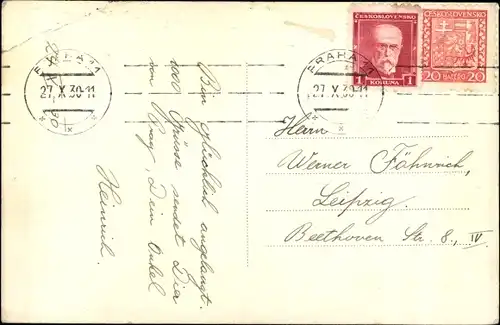 PRAHA 11
27. X 30-11
* IX *
ČESKOSLOVENSKO
1 KORUNA 1
ČESKOSLOVENSKO
20 HALÉŘŮ 20
PRAHA 11
27. X 30-11
* IX *
Bin glücklich angelangt.
1000 Grüsse sendet Dir
von Prag, Dein Onkel
Heinrich.
Herrn
Werner Fähnrich,
Leipzig.
Beethoven Str. 8., IV